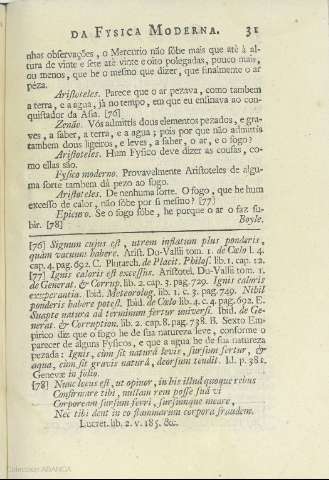 DA FYSICA MODERNA. 31
nhas observações, o Mercurio não sóbe mais que atè á al-
tura de vinte e sete até vinte e oito polegadas, pouco mais,
ou menos, que he o mesmo que dizer, que finalmente o ar
péza.
Aristoteles. Parece que o ar pezava, como tambem
a terra, e a agua, já no tempo, em que eu ensinava ao con-
quistador da Asia. [76]
Zenão. Vós admittis dous elementos pezados, e gra-
ves, a saber, a terra, e a agua; pois por que não admittis
tambem dous ligeiros, e leves, a saber, o ar, e o fogo?
Aristoteles. Hum Fysico deve dizer as cousas, co-
mo ellas são.
Fysico moderno. Provavelmente Aristoteles de algu-
ma sorte tambem dá pezo ao fogo.
Aristoteles. De nenhuma sorte. O fogo, que he hum
excesso de calor, não sóbe por si mesmo? [77]
Epicuro. Se o fogo sóbe, he porque o ar o faz su-
bir. [78] Boyle.
[76] Signum cujus est, utrem inflatum plus ponderis,
quàm vacuum habere. Arist. Du-Vallii tom. 1. de Cælo l. 4.
cap. 4. pag. 692. C. Plutarch. de Placit. Philos. lib. 1. cap. 12.
[77] Ignis caloris est excessus. Aristotel. Du-Vallii tom. 1.
de Generat. & Corrup. lib. 2. cap. 3. pag. 729. Ignis caloris
exuperantia. Ibid. Meteorolog. lib. 1. c. 3. pag. 749. Nihil
ponderis habere potest. Ibid. de Cælo lib. 4. c. 4. pag. 692. E.
Suapte natura ad terminum fertur universi. Ibid. de Ge-
nerat. & Corruption. lib. 2. cap. 8. pag. 738. B. Sexto Em-
pirico diz que o fogo he de sua natureza leve, conforme o
parecer de alguns Fysicos, e que a agua he de sua natureza
pezada: Ignis, cùm sit naturâ levis, sursum fertur, &
aqua, cùm sit gravis naturâ, deorsum tendit. Id. p. 381.
Genevæ in folio.
[78] Nunc locus est, ut opinor, in his illud quoque rebus
Confirmare tibi, nullam rem posse suâ vi
Corpoream sursum ferri, sursumque meare,
Nec tibi dent in eo flammarum corpora fraudem.
Lucret. lib. 2. v. 185. &c.
Colección ABANCA